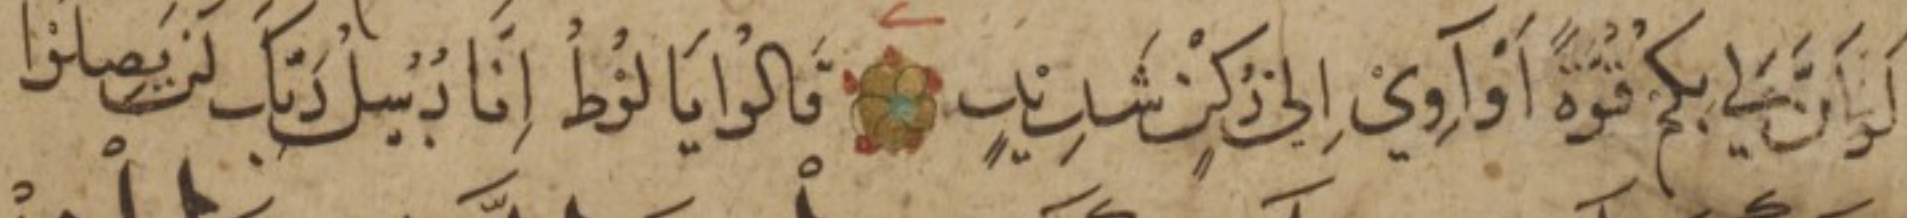 لَوْ اَنَّ لِي بِكُمْ قُوَّةً اَوْ آوِيْ اِلٰى رُكْنٍ شَدِيْدٍ قَالُوْا يَا لُوْطُ اِنَّا رُسُلُ رَبِّكَ لَنْ يَصِلُوْا